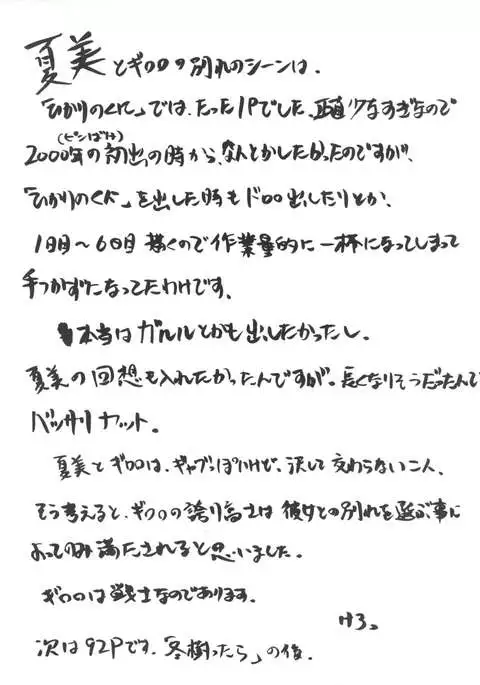 夏美とギロロの別れのシーンは、
「ひかりのくに」では、たった1Pでした、正直少なすぎなので
(ピンばけ)
2000年の初出の時から、なんとかしたかったのですが、
「ひかりのくに」を出した時もドロロ出したりとか、
1日目〜6日目 描くので作業量的に一杯になってしまって
手つかずになってたわけです、
本当はガルルとかも出したかったし、
夏美の回想も入れたかったんですが、長くなりそうだったんで
バッサリカット。
夏美とギロロは、ギャグっぽいけど、決して交わらない二人、
そう考えると、ギロロの誇り高さは彼女との別れを選ぶ事に
よってのみ満たされると思いました。
ギロロは戦士なのであります。
けろっ
次は92Pです、「冬樹ったら」の後、